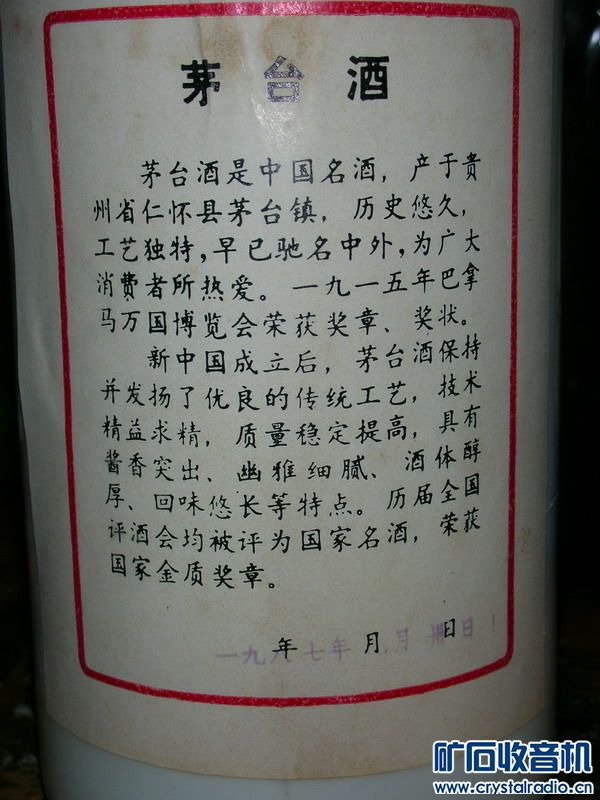 茅台酒
茅台酒是中国名酒，产于贵
州省仁怀县茅台镇，历史悠久，
工艺独特，早已驰名中外，为广大
消费者所热爱。一九一五年巴拿
马万国博览会荣获奖章、奖状。
新中国成立后，茅台酒保持
并发扬了优良的传统工艺，技术
精益求精，质量稳定提高，具有
酱香突出、幽雅细腻、酒体醇
厚、回味悠长等特点。历届全国
评酒会均被评为国家名酒，荣获
国家金质奖章。
年 月 日
一九八七年 月 卅日
矿石收音机
www.crystalradio.cn